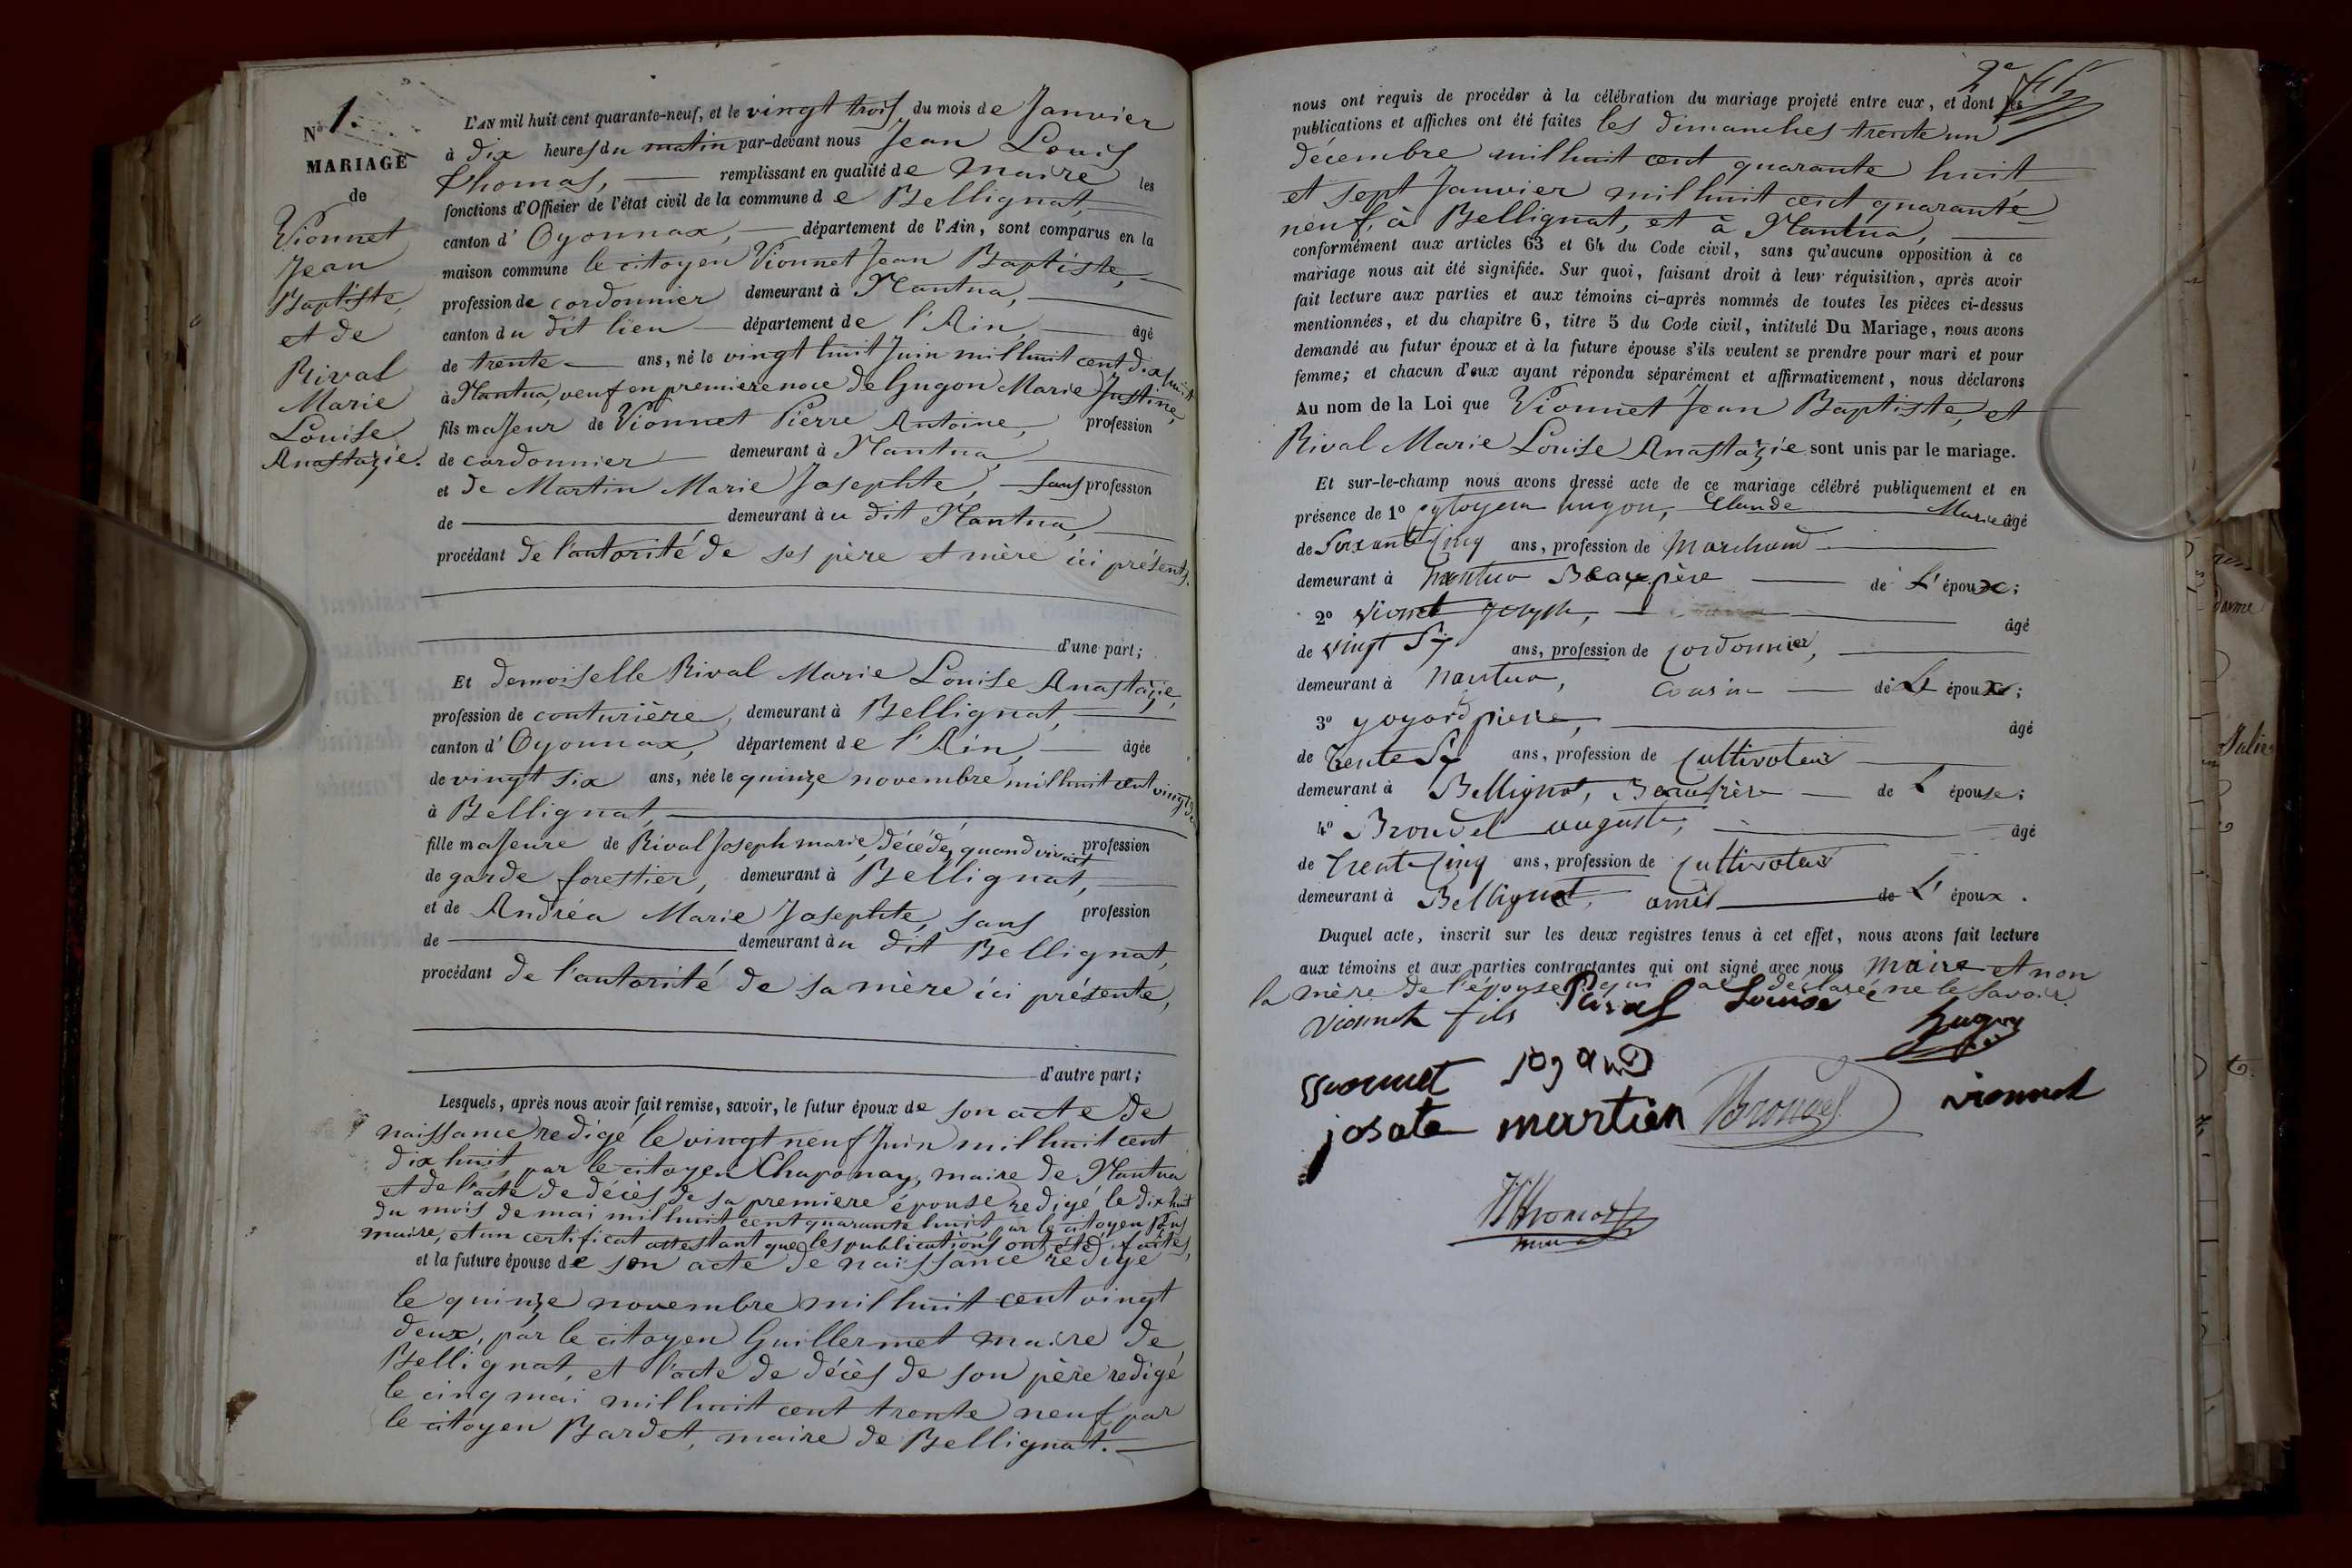 N° 1.
MARIAGE
de
Vionnet
Jean
Baptiste,
et de
Rival
Marie
Louise
Anastazie.
L'AN mil huit cent quarante-neuf, et le vingt trois, du mois de Janvier
à dix heures du matin par-devant nous Jean Louis
Thomas, remplissant en qualité de maire les
fonctions d'Officier de l'état civil de la commune de Bellignat,
canton d'Oyonnax, département de l'Ain, sont comparus en la
maison commune le citoyen Vionnet Jean Baptiste,
profession de cordonnier demeurant à Nantua,
canton du dit lieu département de l'Ain, âgé
de trente ans, né le vingt huit Juin mil huit cent dix huit
à Nantua, veuf en premiere noce de Gugon Marie Justine,
fils majeur de Vionnet Pierre Antoine, profession
de cordonnier demeurant à Nantua,
et de Martin Marie Josephte, sans profession
de demeurant au dit Nantua,
procédant de l'autorité de ses père et mère ici présents.
d'une part;
Et demoiselle Rival Marie Louise Anastazie,
profession de couturière, demeurant à Bellignat,
canton d'Oyonnax, département de l'Ain, âgée
de vingt six ans, née le quinze novembre mil huit cent vingt deux
à Bellignat,
fille majeure de Rival Joseph marie, décédé, quand vivait profession
de garde forestier, demeurant à Bellignat,
et de Andréa Marie Josephte, sans profession
de demeurant au dit Bellignat,
procédant de l'autorité de sa mère ici présente,
d'autre part;
Lesquels, après nous avoir fait remise, savoir, le futur époux de son acte de
naissance redigé le vingt neuf Juin mil huit cent
dix huit, par le citoyen Chaponay, maire de Nantua
et de l'acte de décès de sa premiere épouse redigé le dix huit
du mois de mai mil huit cent quarante huit, par le citoyen
maire, et un certificat attestant que les publications ont été faites,
et la future épouse de son acte de naissance rédigé
le quinze novembre mil huit cent vingt
deux, par le citoyen Guillermet maire de
Bellignat, et l'acte de décès de son père redigé
le cinq mai mil huit cent trente neuf par
le citoyen Bardet, maire de Bellignat.
2e
nous ont requis de procéder à la célébration du mariage projeté entre eux, et dont les
publications et affiches ont été faites les dimanches trente un
décembre mil huit cent quarante huit
et sept Janvier mil huit cent quarante
neuf, à Bellignat, et à Nantua,
conformément aux articles 63 et 64 du Code civil, sans qu'aucune opposition à ce
mariage nous ait été signifiée. Sur quoi, faisant droit à leur réquisition, après avoir
fait lecture aux parties et aux témoins ci-après nommés de toutes les pièces ci-dessus
mentionnées, et du chapitre 6, titre 5 du Code civil, intitulé Du Mariage, nous avons
demandé au futur époux et à la future épouse s'ils veulent se prendre pour mari et pour
femme; et chacun d'eux ayant répondu séparément et affirmativement, nous déclarons
Au nom de la Loi que Vionnet Jean Baptiste, et
Rival Marie Louise Anastazie sont unis par le mariage.
Et sur-le-champ nous avons dressé acte de ce mariage célébré publiquement et en
présence de 1° Cytoyen hugon, Claude Marie âgé
de Soixante Cinq ans, profession de Marchand
demeurant à nantua Beaupère de L'époux;
2° Vionet joseph, âgé
de vingt Six ans, profession de Cordonnier,
demeurant à nantua, Cousin de L'époux;
3° jogard pierre, âgé
de trente Six ans, profession de Cultivateur
demeurant à Bellignat, Beaufrère de L'épouse;
4° Broudel auguste, âgé
de trente Cinq ans, profession de Cultivateur
demeurant à Bellignat, amis de L'époux.
Duquel acte, inscrit sur les deux registres tenus à cet effet, nous avons fait lecture
aux témoins et aux parties contractantes qui ont signé avec nous maire et non
la mère de l'épouse qui a déclarée ne le savoir
Vionnet fils Rival Louise
hugon
vionnet jogard
josate martien Broudel vionnet
Thomas
maire